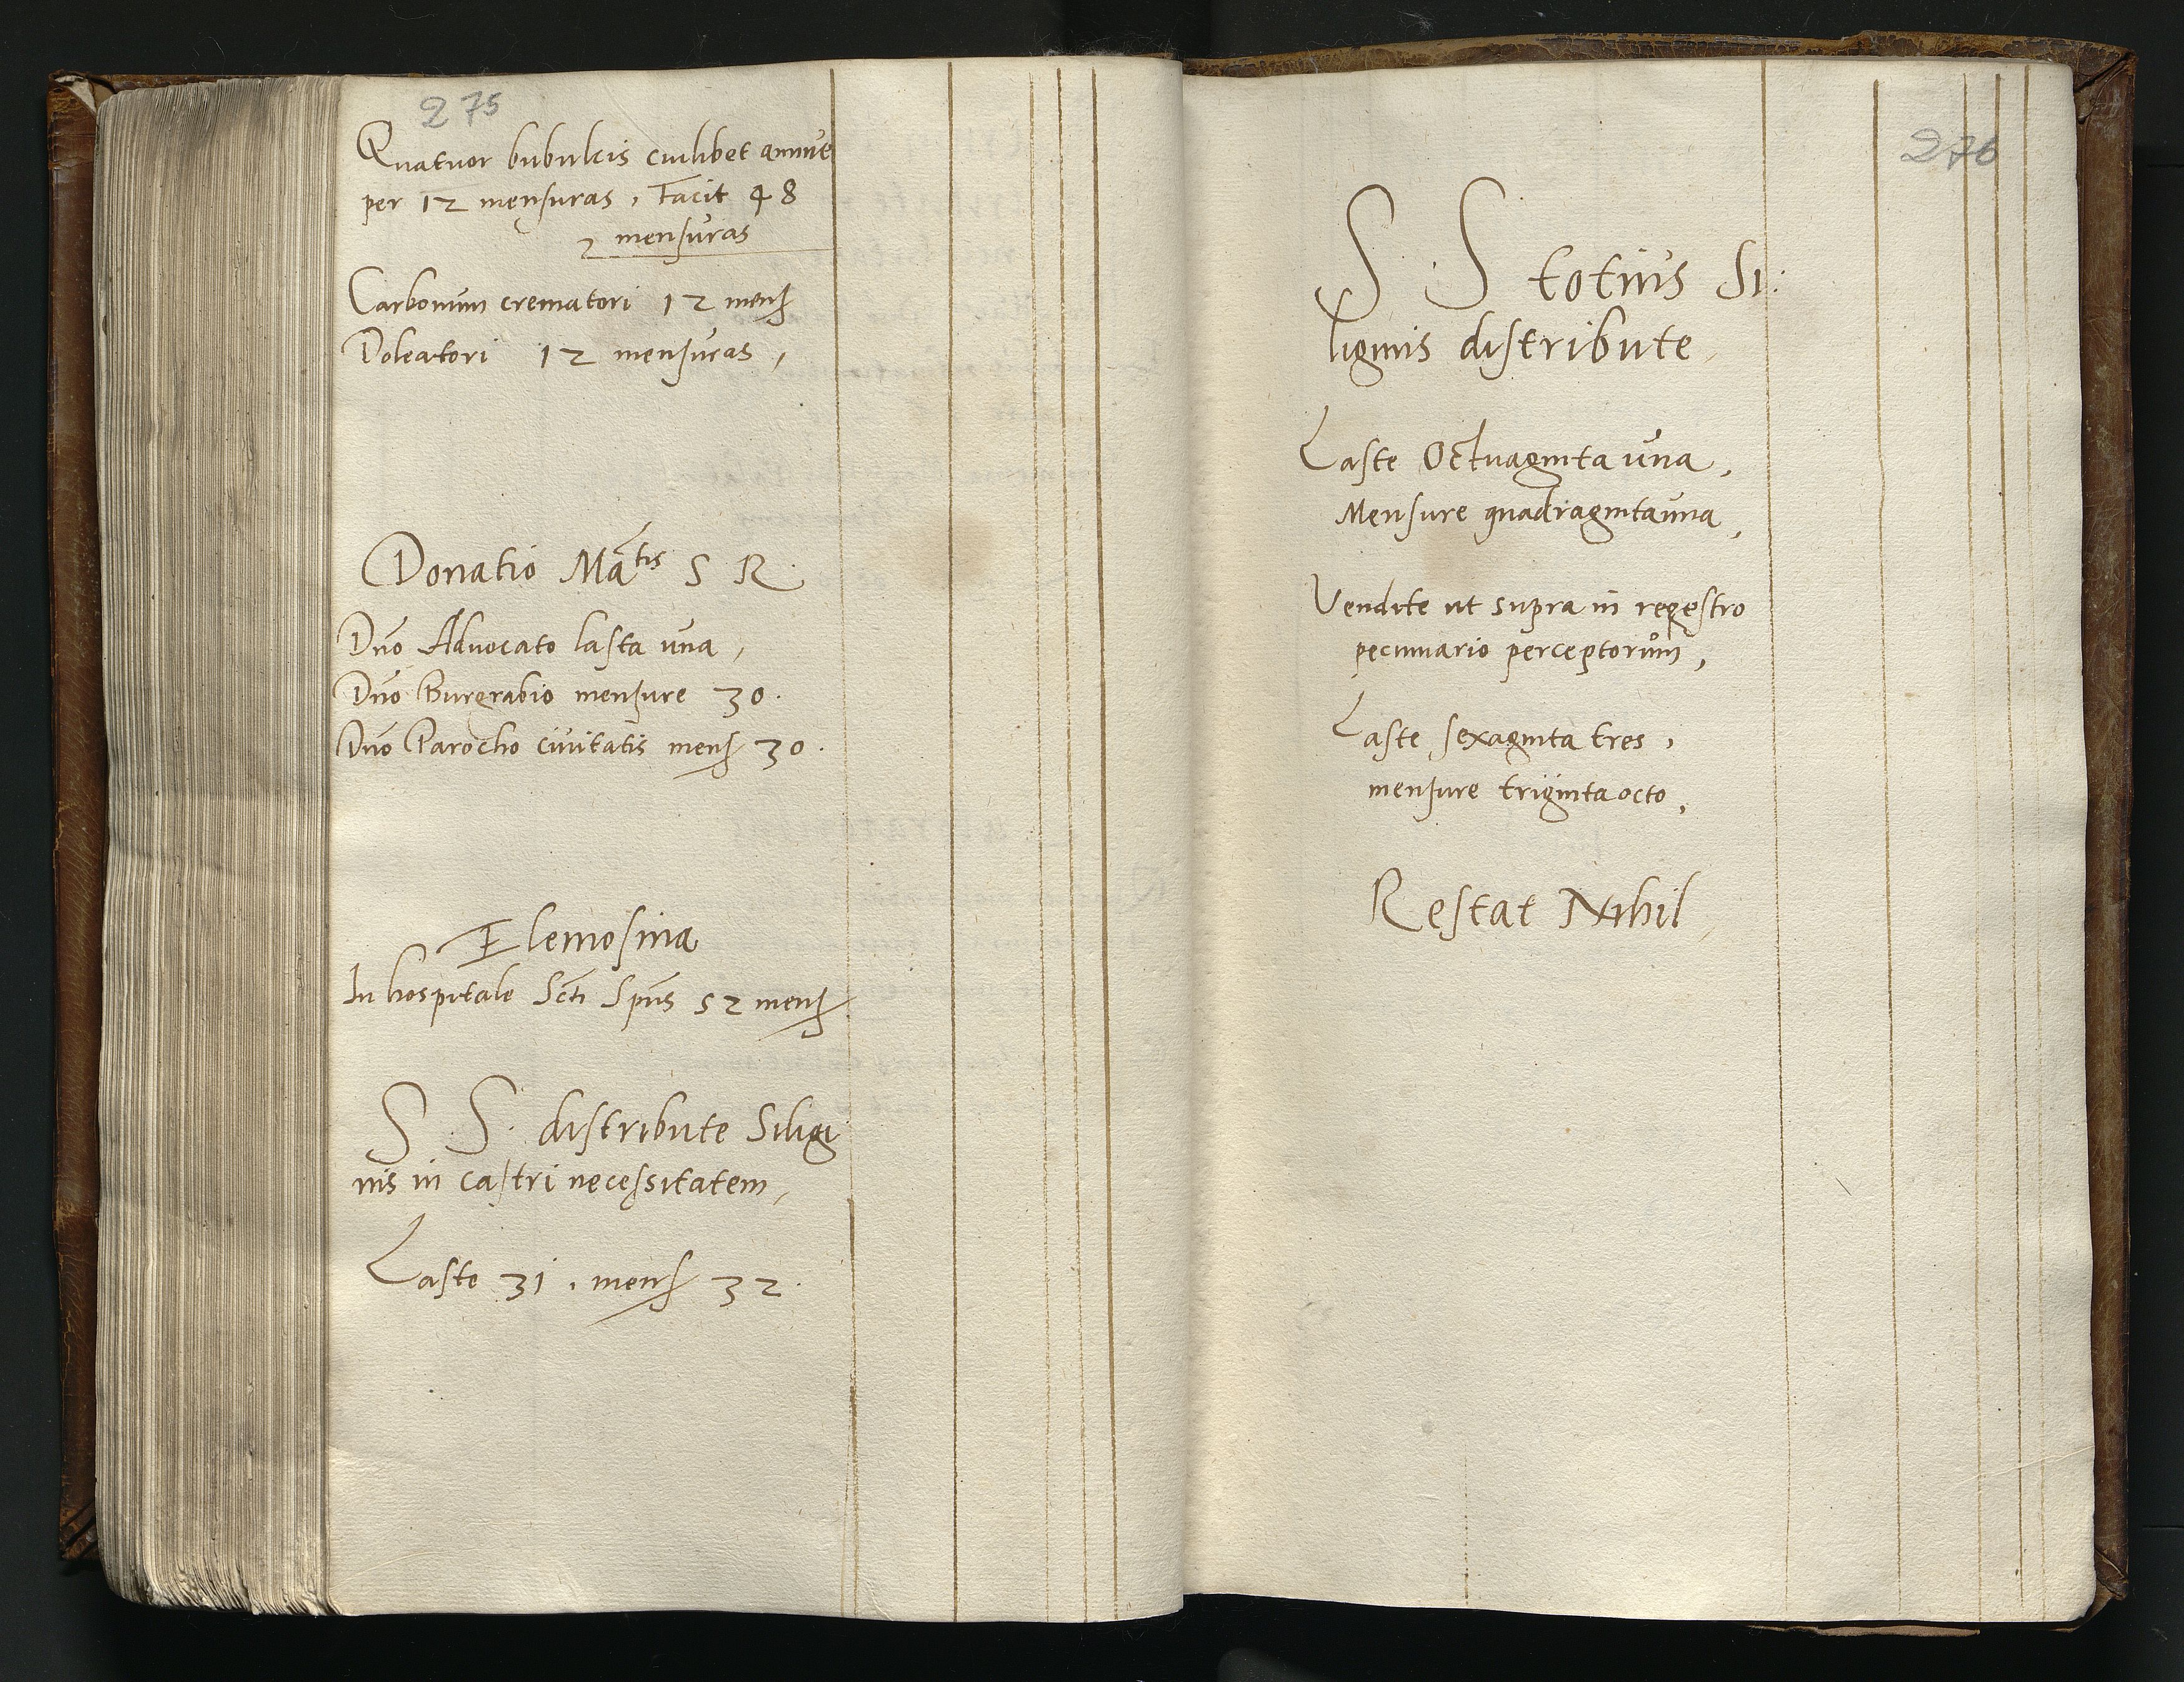 275
Quatuor bubulcis cuilibet annue
per 12 mensuras, Facit 48
mensuras
Carbonum crematori 12 mens
Doleatori 12 mensuras,
Donatio Mãtis S R
Dno Advocato lasta una,
Dno Burgrabio mensure 30.
Dno Parocho civitatis mens 30.
Elemosina
In hospitale Scti Spus 52 mens
S S. distribute Siligi
nis in castri necessitatem,
Laste 31, mens 32.
276
S S totius Si:
liginis distribute
Laste Octuaginta una,
Mensure quadraginta una,
Vendite ut supra in regestro
pecuniario perceptorum,
Laste sexaginta tres,
mensure triginta octo,
Restat Nihil